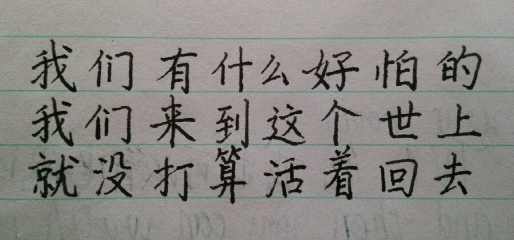 我们有什么好怕的
我们来到这个世上
就没打算活着回去